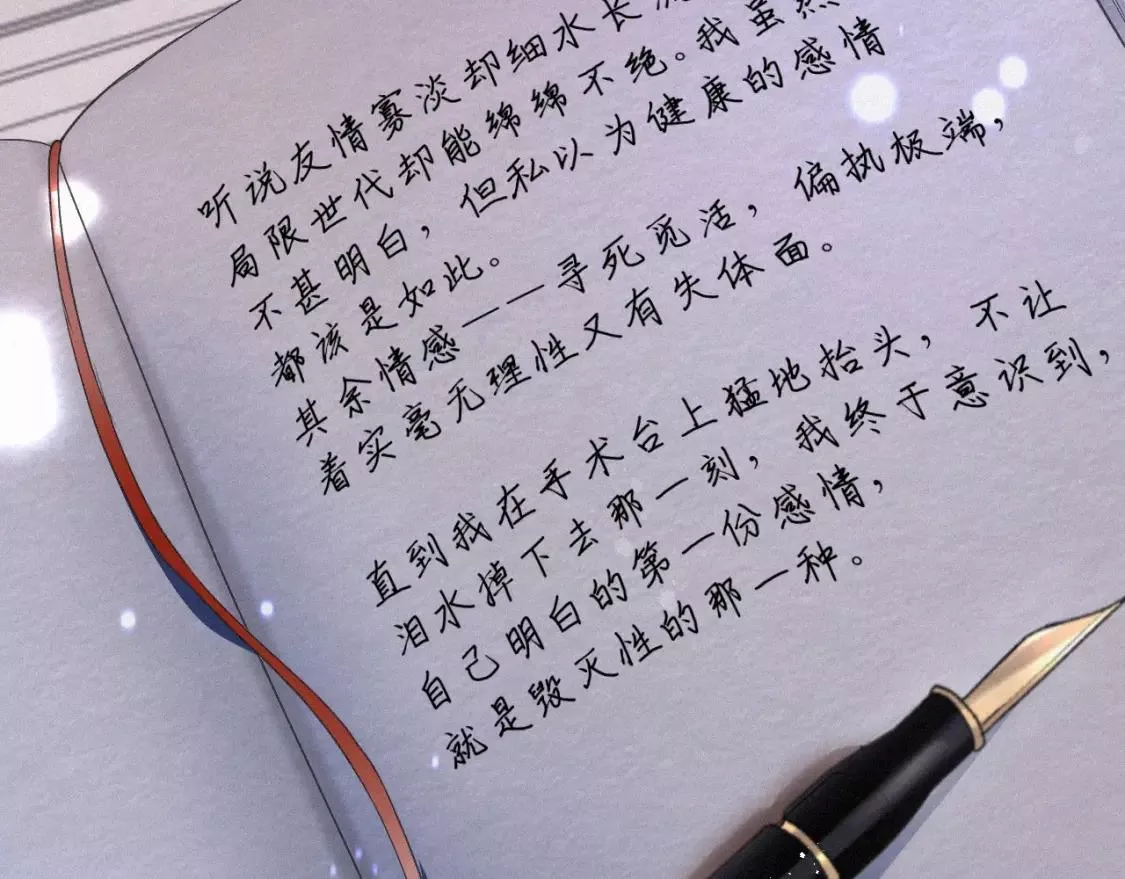 听说友情寡淡却细水长流
局限世代却能绵绵不绝。我虽然
不甚明白，但私以为健康的感情
都该是如此。
其余情感——寻死觅活，偏执极端，
着实毫无理性又有失体面。
直到我在手术台上猛地抬头，不让
泪水掉下去那一刻，我终于意识到，
自己明白的第一份感情，
就是毁灭性的那一种。